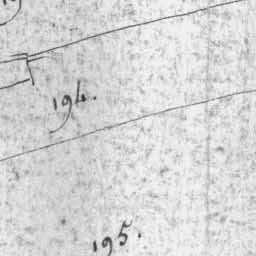 194.
195.